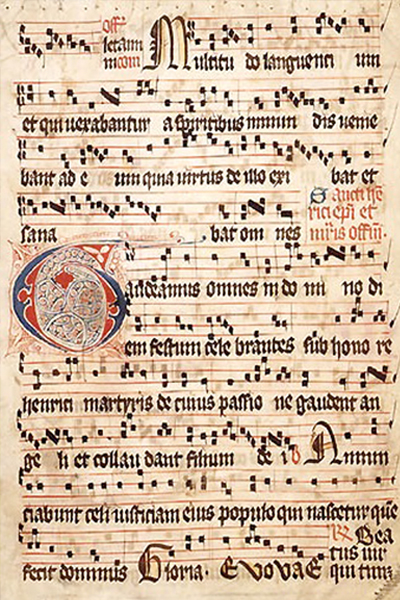 Offm
letatu
Multitu do languenti um
et qui vexabantur a spiritibus inmun dis venie
bant ad e um quia virtus de illo exi bat et
sana bat om nes
Sancti he
rici epi et
mris officiu.
Gaudeamus omnes in do mi no di
em festum cele brantes sub hono re
henrici martyris de cuius passio ne gaudent an
ge li et collau dant filium de i
Annun
ciabunt celi iusticiam eius populo qui nascetur que
fecit dominus Gloria. Evovae
Bea
tus vir
qui